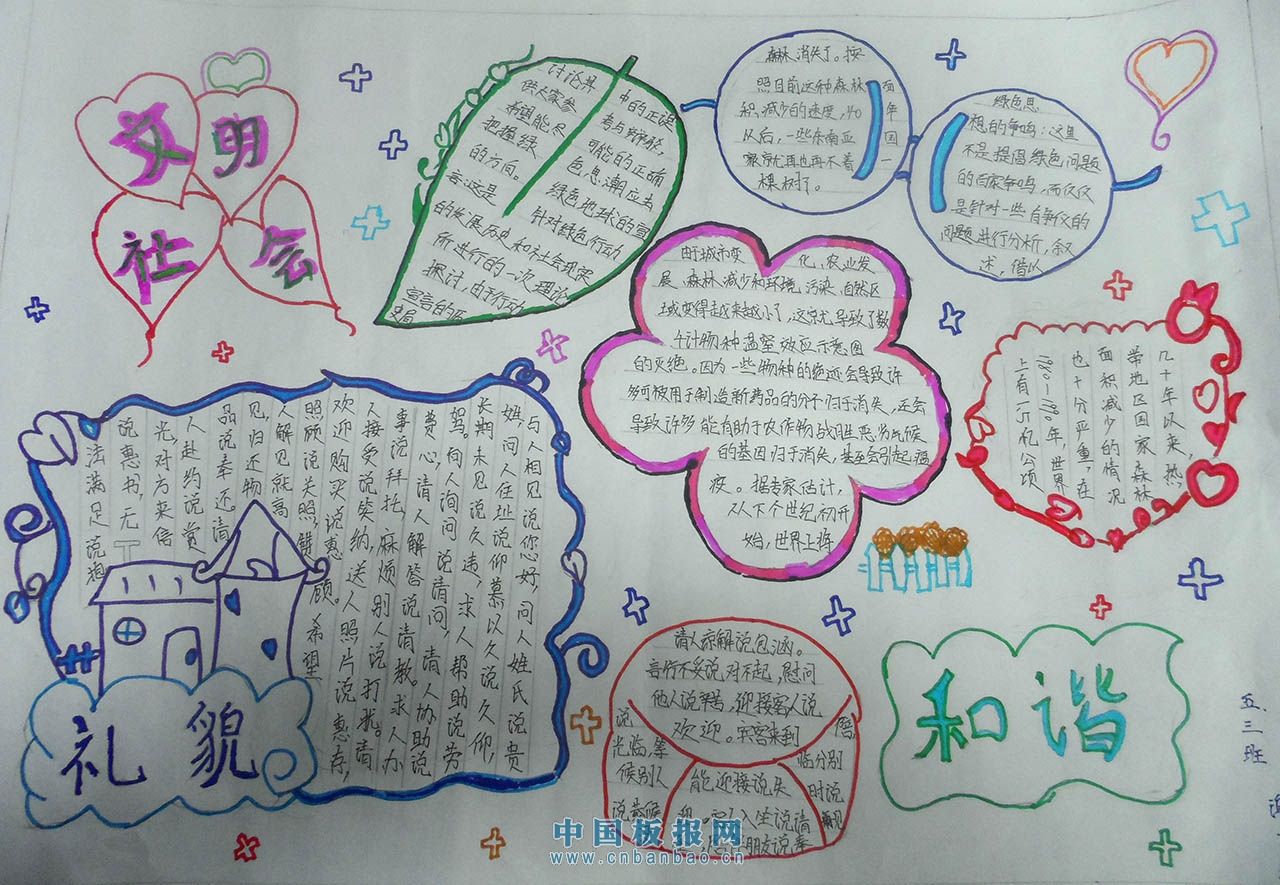 文明
社会
讨论具
中的正误
供大家参
希望能尽
把握绿
的方向。
言：这是
可能的正确
色思潮应去
绿色地球的宣
针对绿色行动
的发展历史和社会现实
所进行的一次理论
探讨，由于行动
宣言的
森林消失了。按
照目前这种森林
积减少的速度，40
以后，一些东南亚
家就再也再不着
棵树了。
面
年
国
一
绿色思
想的争鸣：这里
不是提倡绿色问题
的百家争鸣，而仅仅
是针对一些有争仪的
问题进行分析，叙
述，借以
由于城市变化、农业发
展、森林减少和环境污染，自然区
域变得越来越小了，这就尤导致了数
千计物种温室效应示意图
的灭绝。因为一些物种的绝迹会导致许
多可被用于制造新药品的分子归于消失，还会
导致许多能有助于农作物战胜恶劣气候
的基因归于消失，甚至会引起瘟
疫。据专家估计，
从下个世纪初开
始，世界上将
几十年以来，热
带地区国家森林
面积减少的情况
也十分严重，在
1980-1990年，世界
上有1.5亿公顷
与人相见说您好，问人姓氏说贵
姓，问人住址说仰慕以久说久仰，
长期未见说久违，求人帮助说劳
驾。向人询问说请问，请人协助说
费心，请人解答说请教。求人办
事说拜托，麻烦别人说打扰。请
人接受说笑纳，送人照片说惠存，
欢迎购买说惠顾。希望
照顾说关照，赞
人解见就高
见，归还物
品说奉还。请
人赴约说赏
光，对方来信
说惠书，无
法满足说抱
礼貌
请人谅解说包涵。
言行不妥说对不起，慰问
他人说辛苦，迎接客人说
欢迎。宾客来到
说
光临，等
候别人
说恭候
能迎接说失
迎。客人入坐说请
临分别
时说
和谐
五.三班
中国板报网
www.cnbanbao.cn